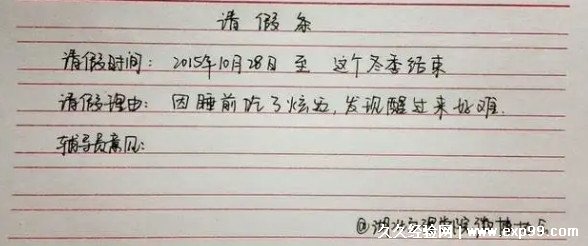 请假条
请假时间: 2015年10月28日 至 这个冬季结束
请假理由: 因睡前吃了炫迈,发现醒过来好难.
辅导员意见:
久久经验网 www.exp99.com